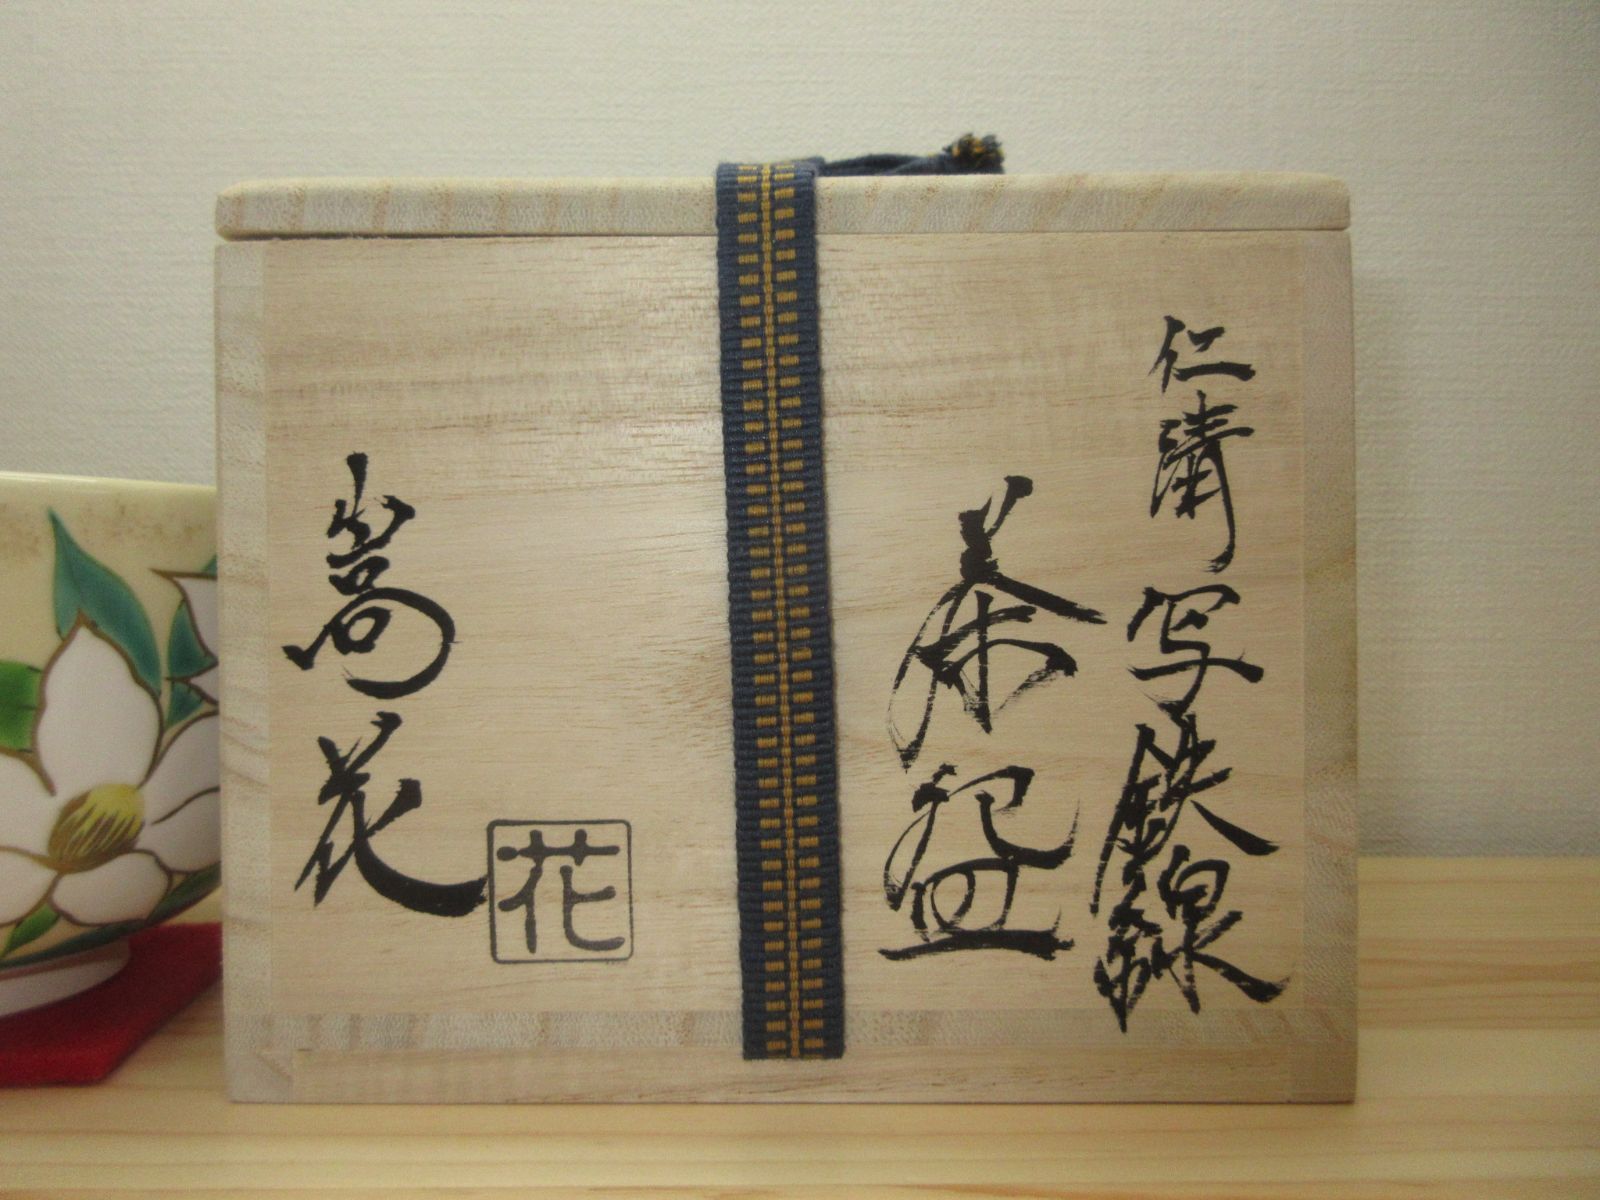 仁清写鉄線
茶盌
嵩花
花